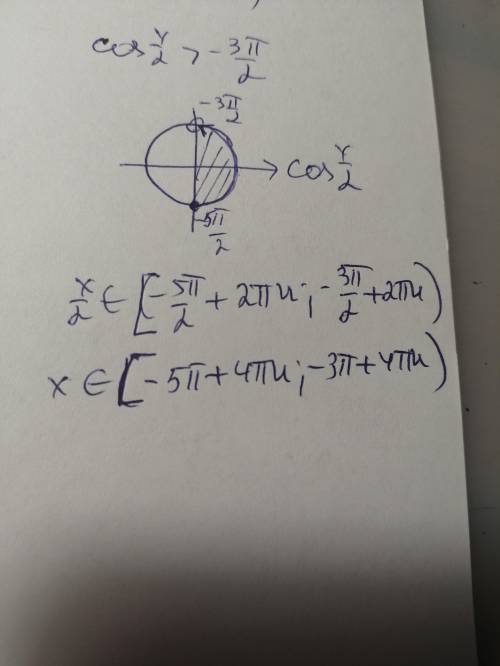 cos x/2 > -3π/2
-3π/2
cos x/2
-5π/2
x/2 ∈ [-5π/2 + 2πn; -3π/2 + 2πn)
x ∈ [-5π + 4πn; -3π + 4πn)